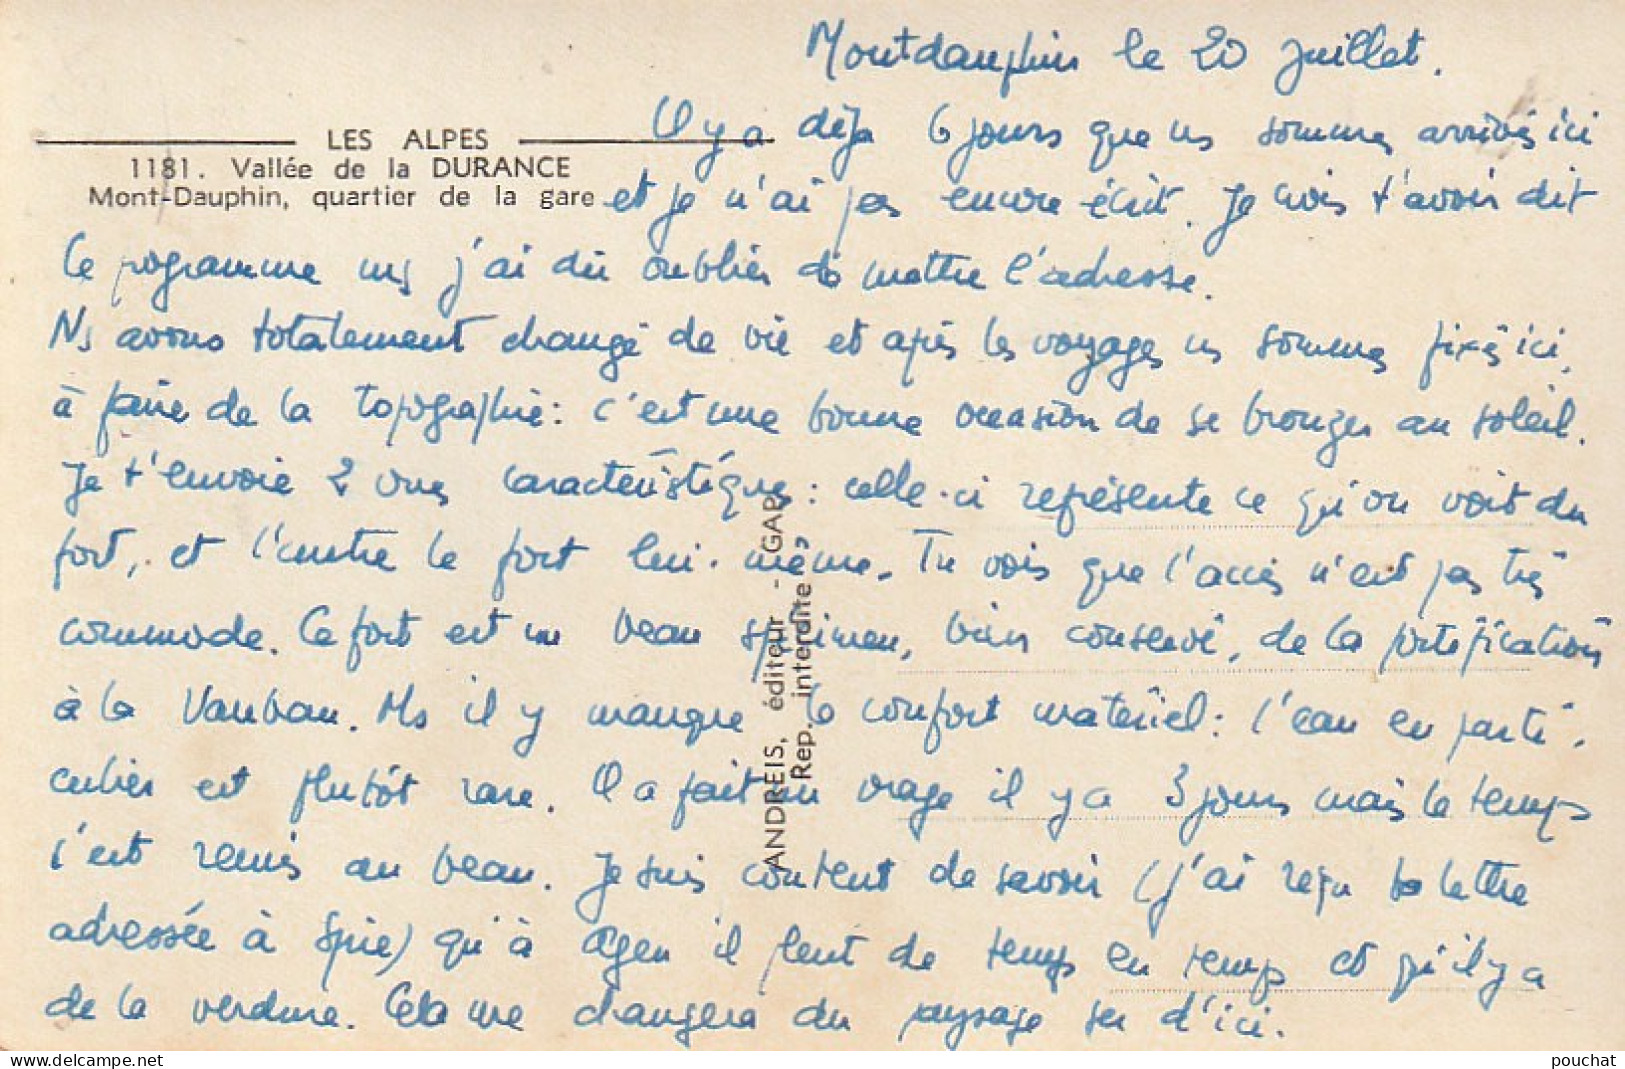 Montdauphin le 20 juillet.
LES ALPES
1181. Vallée de la DURANCE
Mont-Dauphin, quartier de la gare
Il y a déjà 6 jours que ns sommes arrivés ici
et je n'ai pas encore écrit. Je crois t'avoir dit
le programme ms j'ai dû oublier de mettre l'adresse.
Ns avons totalement changé de vie et après les voyages ns sommes fixés ici,
à faire de la topographie : c'est une bonne occasion de se bronzer au soleil.
Je t'envoie 2 vues caractéristiques : celle-ci représente ce qu'on voit du
fort, et l'autre le fort lui-même. Tu vois que l'accès n'est pas très
commode. Ce fort est un beau spécimen, bien conservé, de la fortification
à la Vauban. Ms il y manque le confort matériel : l'eau en parti-
culier est plutôt rare. Il a fait un orage il y a 3 jours mais le temps
s'est remis au beau. Je suis content de savoir (j'ai reçu ta lettre
adressée à Spire) qu'à Agen il pleut de temps en temps et qu'il y a
de la verdure. Cela me changera du paysage sec d'ici.
ANDREIS, éditeur - GAP
Rep. interdite
delcampe.net
pouchat